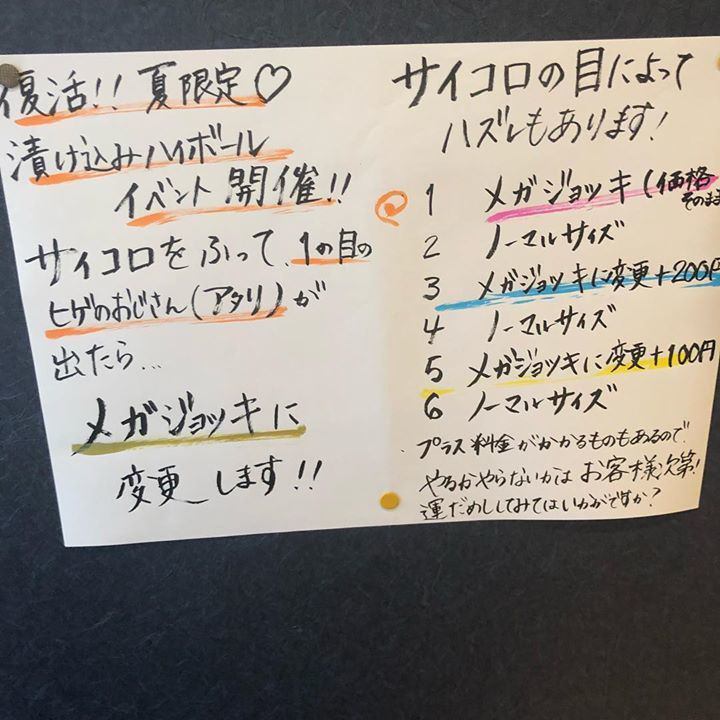 復活!! 夏限定♡
漬け込みハイボール
イベント開催!!
サイコロをふって、1の目の
ヒゲのおじさん(アタリ)が
出たら...
メガジョッキに
変更します!!
サイコロの目によって
ハズレもあります!
1 メガジョッキ(価格
そのまま
2 ノーマルサイズ
3 メガジョッキに変更+200円
4 ノーマルサイズ
5 メガジョッキに変更+100円
6 ノーマルサイズ
プラス料金がかかるものもあるので、
やるかやらないかはお客様次第!
運だめししてみてはいかがですか?